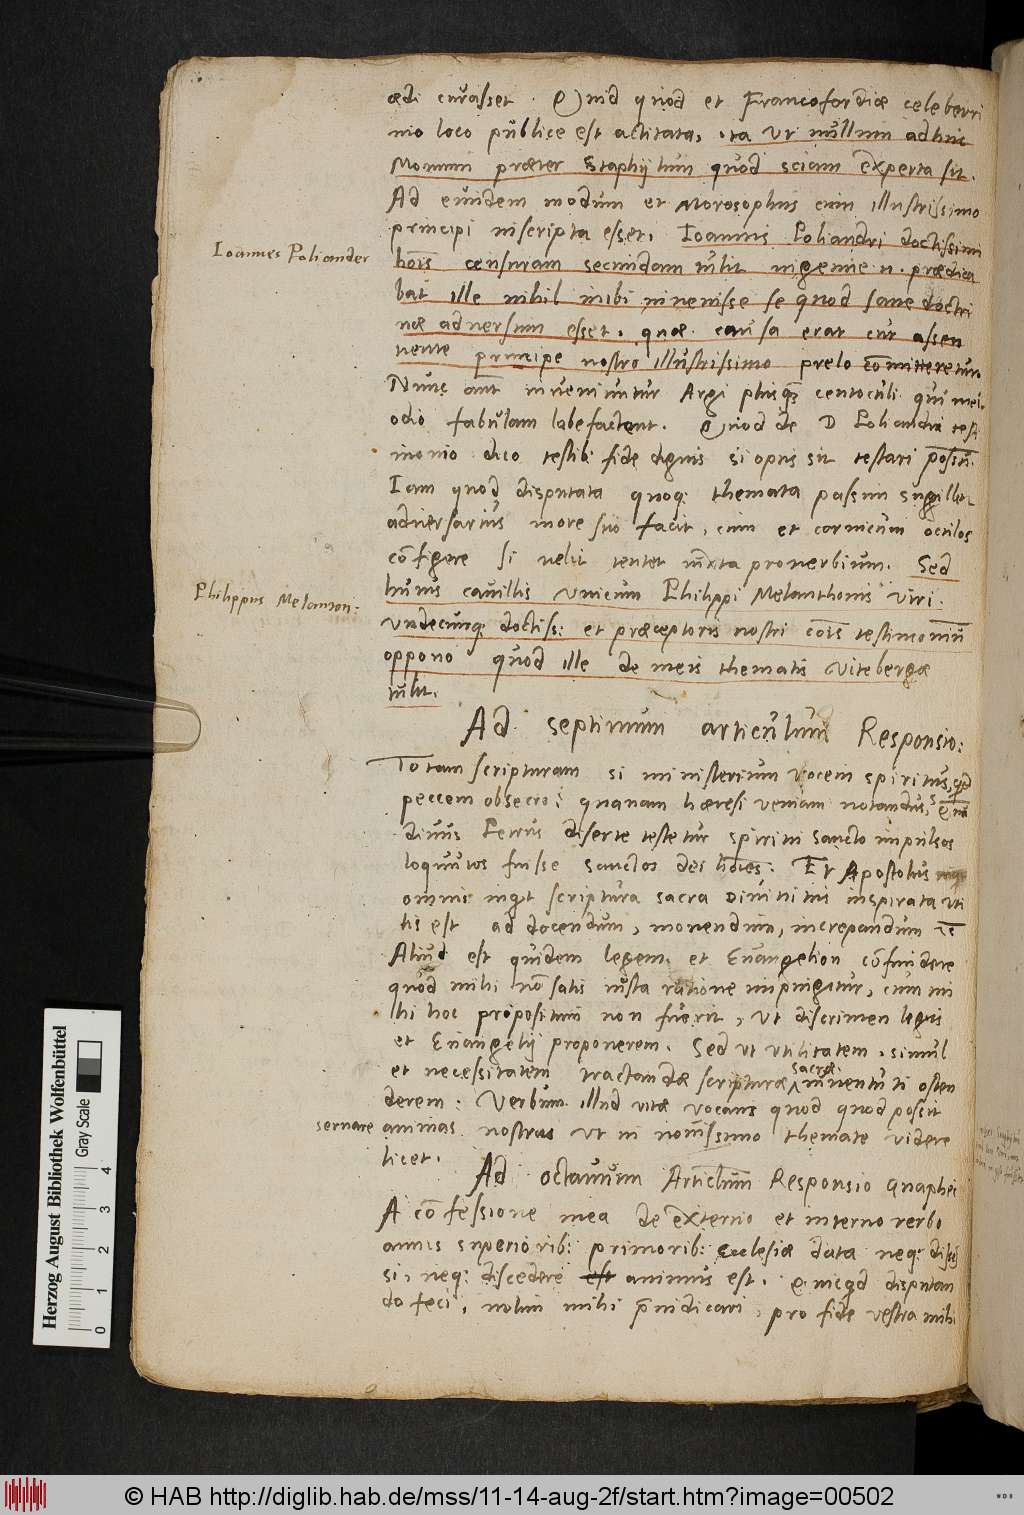 ædi curasset. Quid quod et Francofordiæ celeberri
mo loco publice est actitata, ita ut nullum adhuc
Momum præter Staphylum quod sciam experta sit.
Ad eundem modum et Morosophus cum illustrissimo
principi inscripta esset, Ioannis Poliandri doctissimi
Ioannes Poliander
hois censuram secundam tulit ingenue n. prædica
bat ille nihil inibi invenisse se quod sane doctri
næ adversum esset, quæ causa erat cur assen
tiente principe nostro illustrissimo prelo cōmitteretur
Nunc aut inveniuntur Argi plusq centoculi qui mei
odio fabulam labefactent. Quod de D Poliandri testi
monio dico testib: fide dignis si opus sit testari possū.
Iam quod disputata quoq: themata passim sugillat
adversarius more suo facit, cum et cornicum oculos
cōfigere si velit tentet iuxta proverbium. Sed
huius cavillis unicum Philippi Melanthonis viri
Philippus Melanton:
undecunq: doctiss: et præceptoris nostri cōis testimoniū
oppono quod ille de meis thematis Vitebergæ
tulit.
Ad septimum articulum Responsio:
Totam scripturam si ministerium vocem spiritus, qd
peccem obsecro? quanam hæresi veniam notandus,
divus Petrus diserte testetur spiritu sancto impulsos
loquutos fuisse sanctos dei hoies: Et Apostolus
omnis inqt scriptura sacra divinitus inspirata uti
lis est ad docendum, monendum, increpandum
Aliud est quidem legem et Euangelion cōfundere
quod mihi nō satis iusta ratione impingitur, cum mi
hi hoc propositum non fuerit, ut discrimen legis
et Euangelij proponerem. Sed ut utilitatem simul
et necessitatem tractandæ scripturæ sacræ iuventuti osten
derem: Verbum illud vitæ vocans quod quod possit
servare animas nostras ut in novissimo themate videre
licet.
Ad octavum Articulum Responsio Gnaphei
A cōfessione mea de externo et interno verbo
annis superiorib: primorib: Ecclesiæ data neq:
si, neq: discedere est animus est. Quicqd disputan
do feci, nolim mihi præiudicari, pro fide vestra mihi
Herzog August Bibliothek Wolfenbüttel
Gray Scale
0 1 2 3 4
© HAB http://diglib.hab.de/mss/11-14-aug-2f/start.htm?image=00502